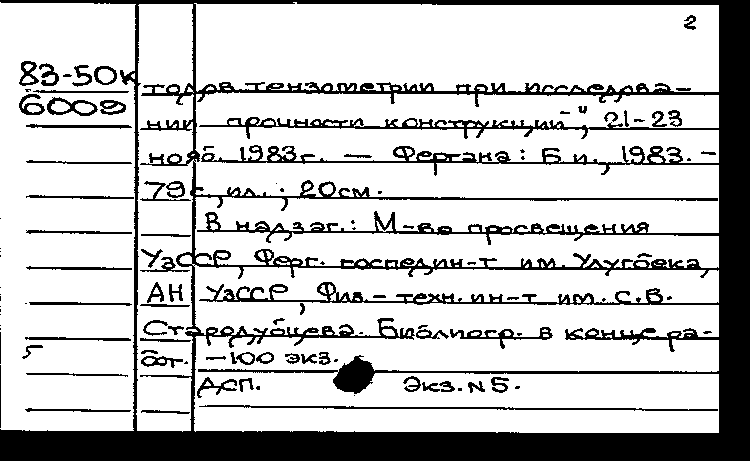 2
83-50к тодов тензометрии при исследова-
6009 нии прочности конструкций", 21-23
нояб. 1983г. — Фергана: Б.и., 1983. -
79с., ил.; 20см.
В надзаг.: М-во просвещения
УзССР, Ферг. госпедин-т им. Улугбека,
АН УзССР, Физ.-техн. ин-т им. С.В.
Стародубцева. Библиогр. в конце ра-
бот. -100 экз.
ДСП. Экз. N5.